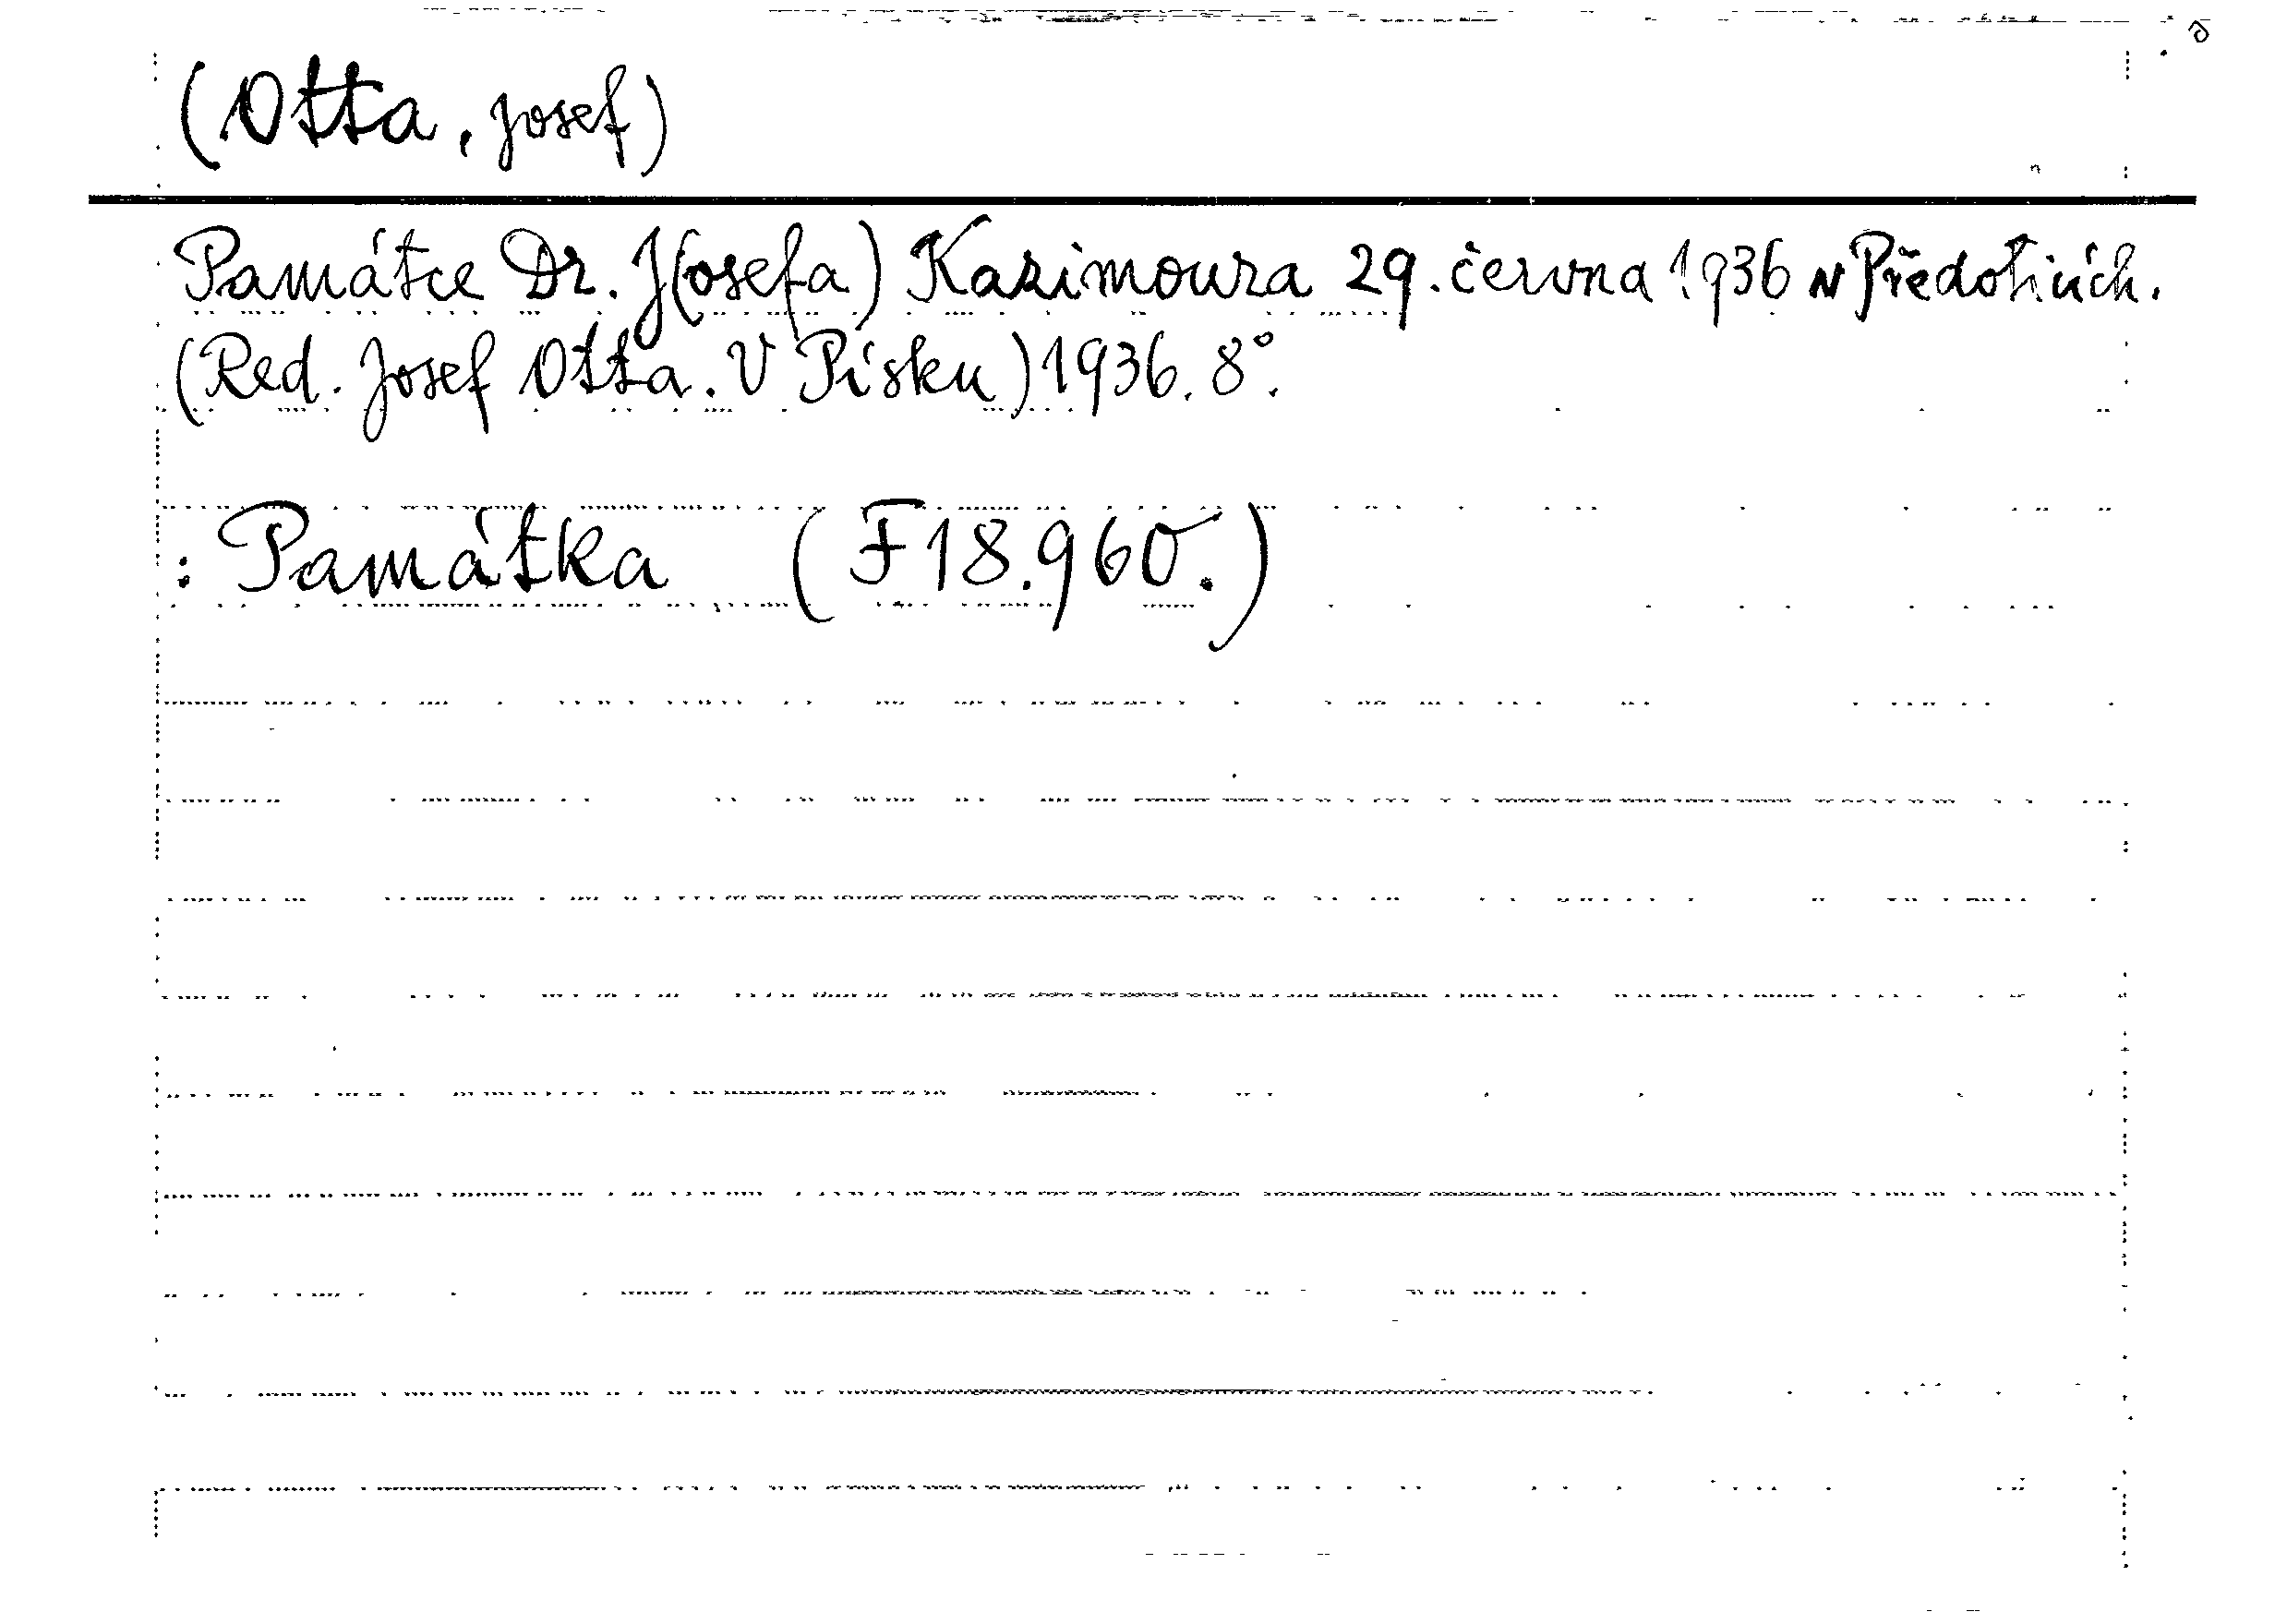 (Otta, Josef)
Památce Dr. J(osefa) Kazimoura 29. června 1936 v Předoticích.
(Red. Josef Otta. V Písku) 1936. 8°.
: Památka (F18.960.)